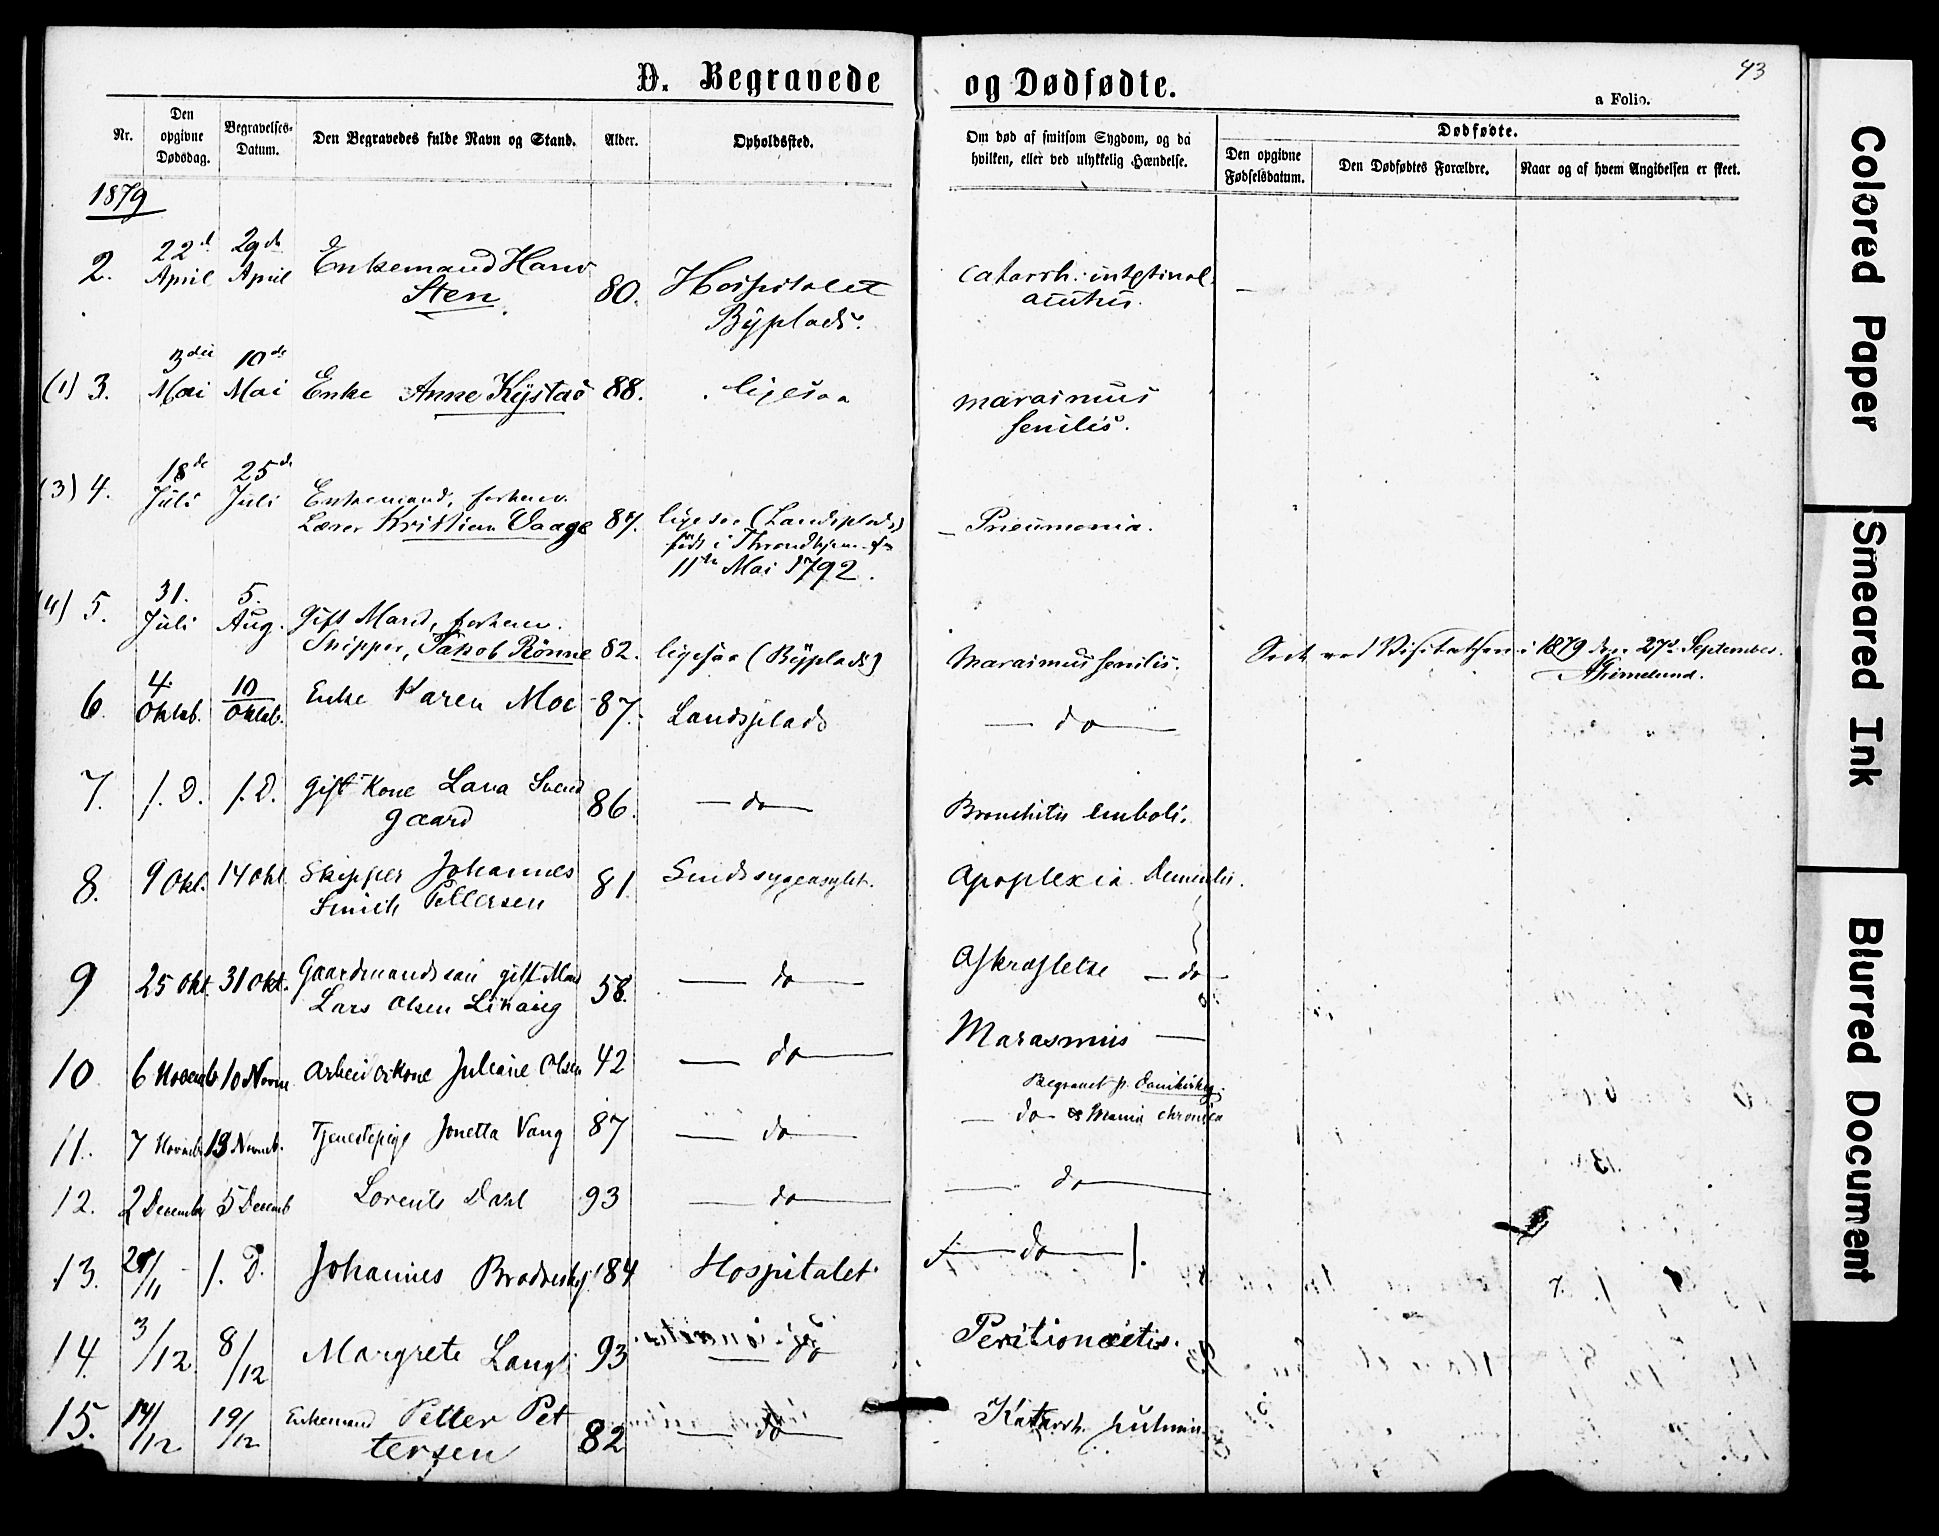 D. Begravede og Dødfødte.
43
a Folio.
Nr.
Den opgivne Dødsdag.
Begravelses-Datum.
Den Begravedes fulde Navn og Stand.
Alder.
Opholdssted.
Om død af smitsom Sygdom, og da
hvilken, eller ved ulykkelig Hændelse.
Dødfødte.
Den opgivne Fødselsdatum.
Den Dødfødtes Forældre.
Naar og af hvem Angivelsen er skeet.
1879
2. 22d April 29de April Enkemand Hans 80. Hospitalet catarrh. intestinal.
Sten Byplads. acutus.
(1) 3. 3die Mai 10de Mai Enke Anne Kystad 88. ligesaa marasmus
senilis.
(3) 4. 18de Juli 25de Juli Enkemand, forhenv.
Lærer Kristian Vaage 87. ligesaa (Landsplads) Pneumonia.
født i Throndhjem
11te Mai 1792.
(4) 5. 31. Juli 5. Aug. Gift Mand, forhenv.
Skipper, Jakob Rönne 82. ligesaa (Byplads) Marasmus senilis. Seet ved Visitathsen i 1879 den 27de September.
Grimelund.
6. 4. Oktob. 10 Oktob. Enke Karen Moe 87. Landsplads — do —
7. s. D. s. D. Gift Kone Lava Svend 86. — do — Bronchitis emboli.
gaard
8. 9 Okt. 14 Okt. Skipper Johannes 81. Sindssygeasylet. Apoplexia.
Smith Pettersen
9 25 Okt. 31 Okt. Gaardmandssøn gift Mand 58. — do — Afkræftelse — do —
Lars Olsen
10 6 Novemb 10 Novm Arbeiderkone Juliane Olsen 42 — do — Marasmus —
Begravet p. Domkirkeg.
11. 7 Novmb 13 Novmb. Tjenestepige Jonetta Vang 87 — do — — do — Mania chronica
12. 2 Decembr 5 Decemb Lorents Dahl 93 — do — — do —
13. /11 s. D. Johannes 84 Hospitalet — do —
14. 3/12 8/12 Margrete 93 — do Peritionitis.
15. 14/12 19/12 Enkemand Petter Pet 82 — do — Katarrh. pulmon.
tersen
Colored Paper
Smeared Ink
Blurred Document